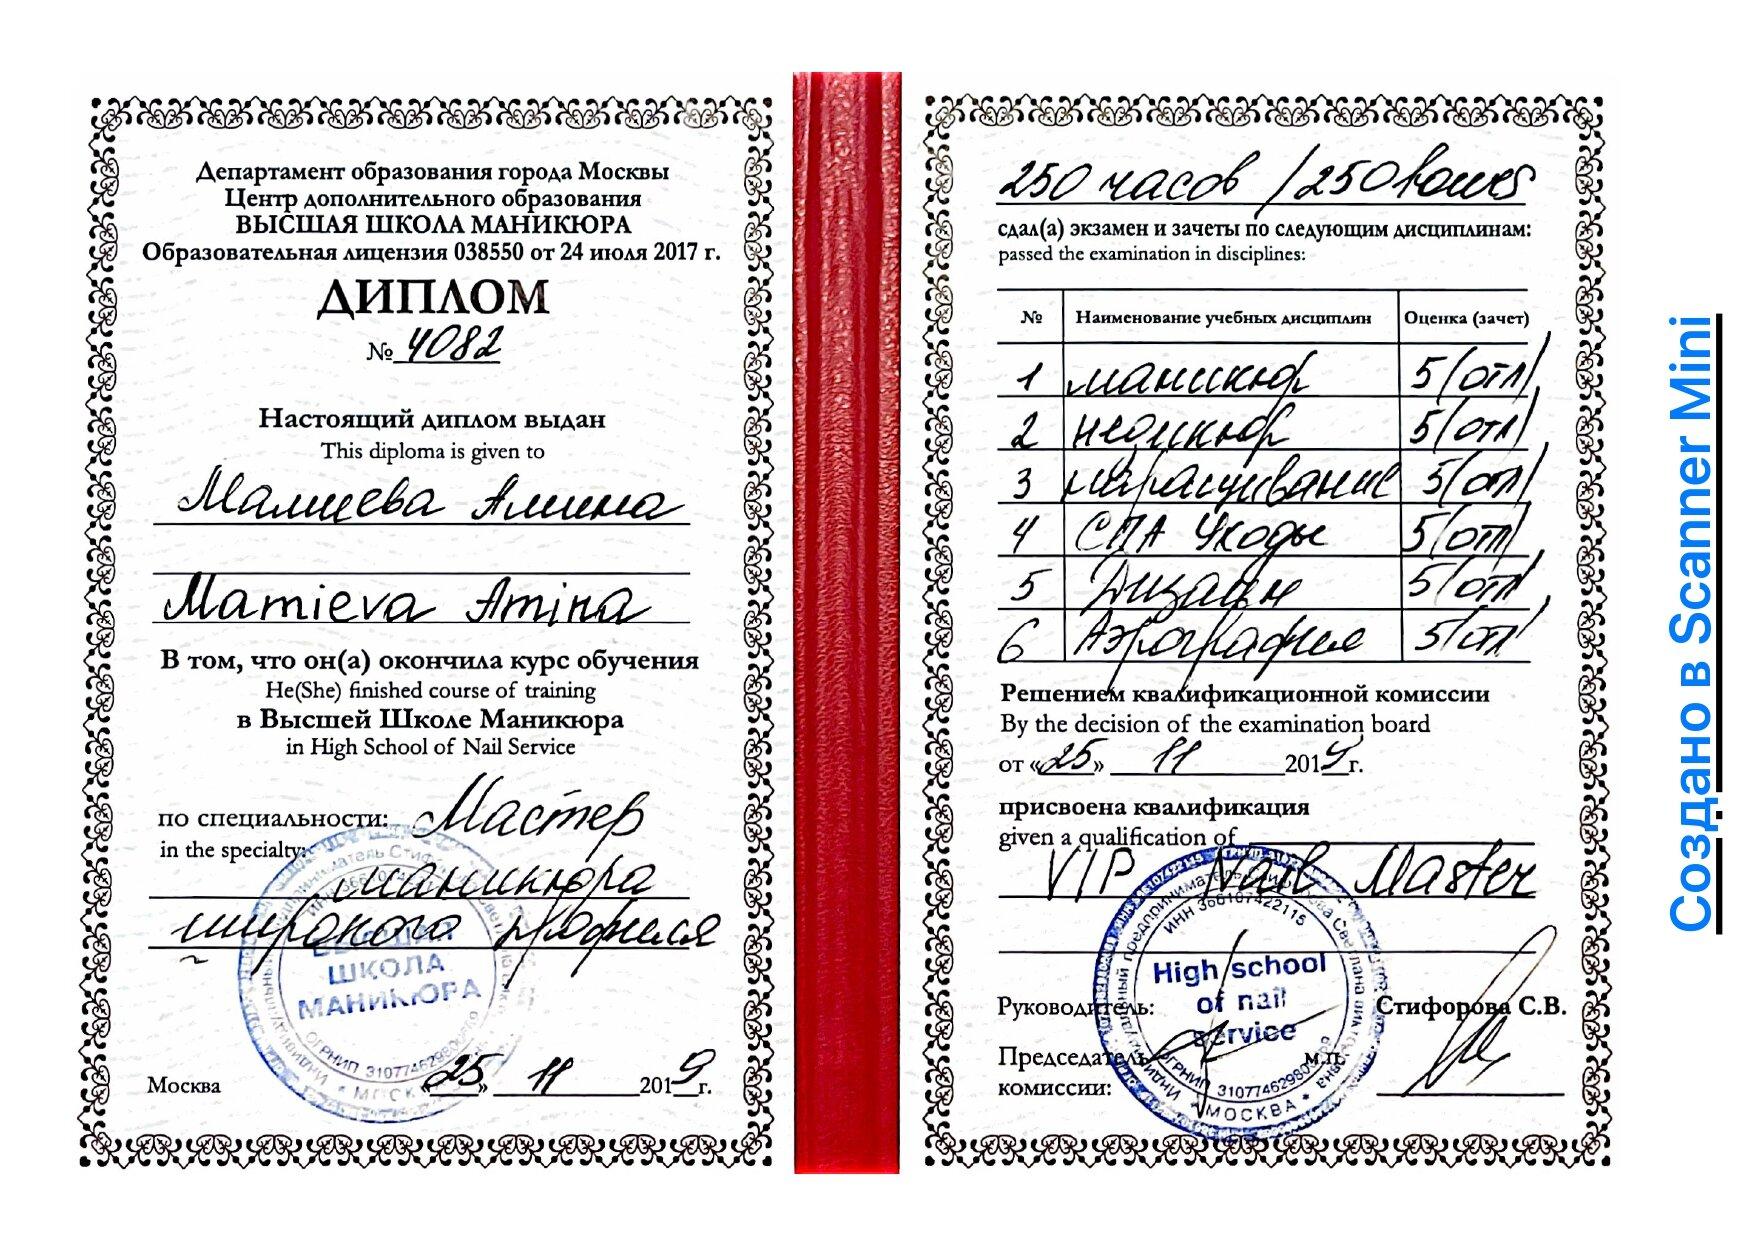 Департамент образования города Москвы
Центр дополнительного образования
ВЫСШАЯ ШКОЛА МАНИКЮРА
Образовательная лицензия 038550 от 24 июля 2017 г.
ДИПЛОМ
№ 4082
Настоящий диплом выдан
This diploma is given to
Мамиева Амина
Mamieva Amina
В том, что он(а) окончила курс обучения
He(She) finished course of training
в Высшей Школе Маникюра
in High School of Nail Service
по специальности: Мастер
in the specialty:
маникюра
широкого профиля
ВЫСШАЯ
ШКОЛА
МАНИКЮРА
Москва «25» 11 2019 г.
250 часов / 250 houres
сдал(а) экзамен и зачеты по следующим дисциплинам:
passed the examination in disciplines:
№ Наименование учебных дисциплин Оценка (зачет)
1 маникюр 5 (отл)
2 педикюр 5 (отл)
3 наращивание 5 (отл)
4 СПА Уходы 5 (отл)
5 Дизайн 5 (отл)
6 Аэрография 5 (отл)
Решением квалификационной комиссии
By the decision of the examination board
от «25» 11 2019 г.
присвоена квалификация
given a qualification of
VIP Nail Master
ИНН 366107422115
High school
of nail
service
МОСКВА
Руководитель: Стифорова С.В.
Председатель м.п.
комиссии:
Создано в Scanner Mini